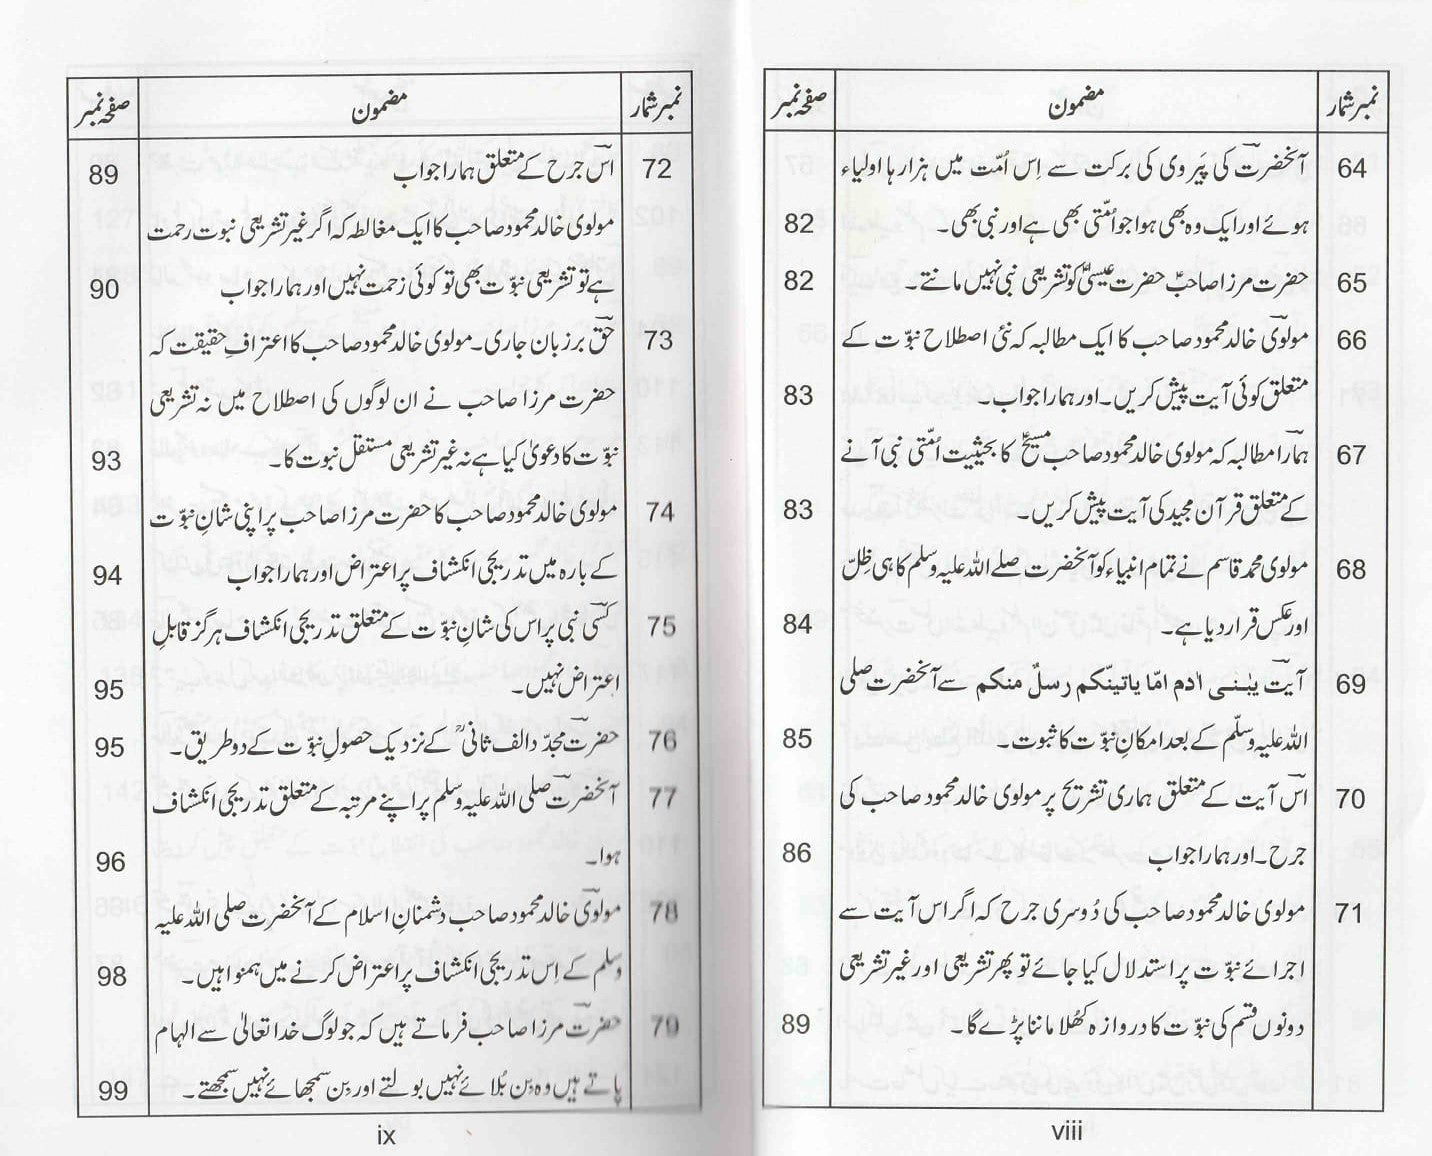 نمبر شمار مضمون صفحہ نمبر
64 آنحضرتؐ کی پَیروی کی برکت سے اِس اُمّت میں ہزارہا اولیاء
ہوئے اور ایک وہ بھی ہوا جو اُمّتی بھی ہے اور نبی بھی۔ 82
65 حضرت مرزا صاحبؑ حضرت عیسیٰؑ کو تشریعی نبی نہیں مانتے۔ 82
66 مولوی خالد محمود صاحب کا ایک مطالبہ کہ نئی اصطلاح نبوّت کے
متعلق کوئی آیت پیش کریں۔ اور ہمارا جواب۔ 83
67 ہمارا مطالبہ کہ مولوی خالد محمود صاحب مسیحؑ کا بحیثیت اُمّتی نبی آنے
کے متعلق قرآن مجید کی آیت پیش کریں۔ 83
68 مولوی محمد قاسم نے تمام انبیاء کو آنحضرت صلے اللہ علیہ وسلم کا ہی ظِلّ
اور عکس قرار دیا ہے۔ 84
69 آیت یٰبنی اٰدم امّا یاتینّکم رسلٌ منکم سے آنحضرت صلی
اللہ علیہ وسلّم کے بعد امکانِ نبوّت کا ثبوت۔ 85
70 اس آیت کے متعلق ہماری تشریح پر مولوی خالد محمود صاحب کی
جرح۔ اور ہمارا جواب 86
71 مولوی خالد محمود صاحب کی دُوسری جرح کہ اگر اس آیت سے
اجرائے نبوّت پر استدلال کیا جائے تو پھر تشریعی اور غیر تشریعی
دونوں قسم کی نبوّت کا دروازہ کھُلا ماننا پڑے گا۔ 89
viii
نمبر شمار مضمون صفحہ نمبر
72 اس جرح کے متعلق ہمارا جواب 89
مولوی خالد محمود صاحب کا ایک مغالطہ کہ اگر غیر تشریعی نبوت رحمت
ہے تو تشریعی نبوّت بھی تو کوئی زحمت نہیں اور ہمارا جواب 90
73 حق بر زبان جاری۔ مولوی خالد محمود صاحب کا اعترافِ حقیقت کہ
حضرت مرزا صاحب نے ان لوگوں کی اصطلاح میں نہ تشریعی
نبوّت کا دعویٰ کیا ہے نہ غیر تشریعی مستقل نبوت کا۔ 93
74 مولوی خالد محمود صاحب کا حضرت مرزا صاحب پر اپنی شانِ نبوّت
کے بارہ میں تدریجی انکشاف پر اعتراض اور ہمارا جواب 94
75 کسی نبی پر اس کی شانِ نبوّت کے متعلق تدریجی انکشاف ہرگز قابلِ
اعتراض نہیں۔ 95
76 حضرت مجدّد الف ثانیؒ کے نزدیک حصولِ نبوّت کے دو طریق۔ 95
77 آنحضرت صلی اللہ علیہ وسلم پر اپنے مرتبہ کے متعلق تدریجی انکشاف
ہوا۔ 96
78 مولوی خالد محمود صاحب دشمنانِ اسلام کے آنحضرت صلی اللہ علیہ
وسلم کے اِس تدریجی انکشاف پر اعتراض کرنے میں ہمنوا ہیں۔ 98
79 حضرت مرزا صاحب فرماتے ہیں کہ جو لوگ خدا تعالیٰ سے الہام
پاتے ہیں وہ بِن بُلائے نہیں بولتے اور بِن سمجھائے نہیں سمجھتے۔ 99
ix